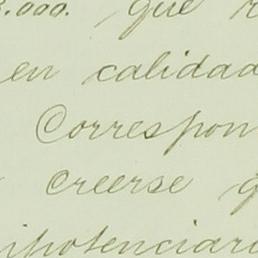 .000. , que
en calidad
Correspon
creerse
ipotenciari